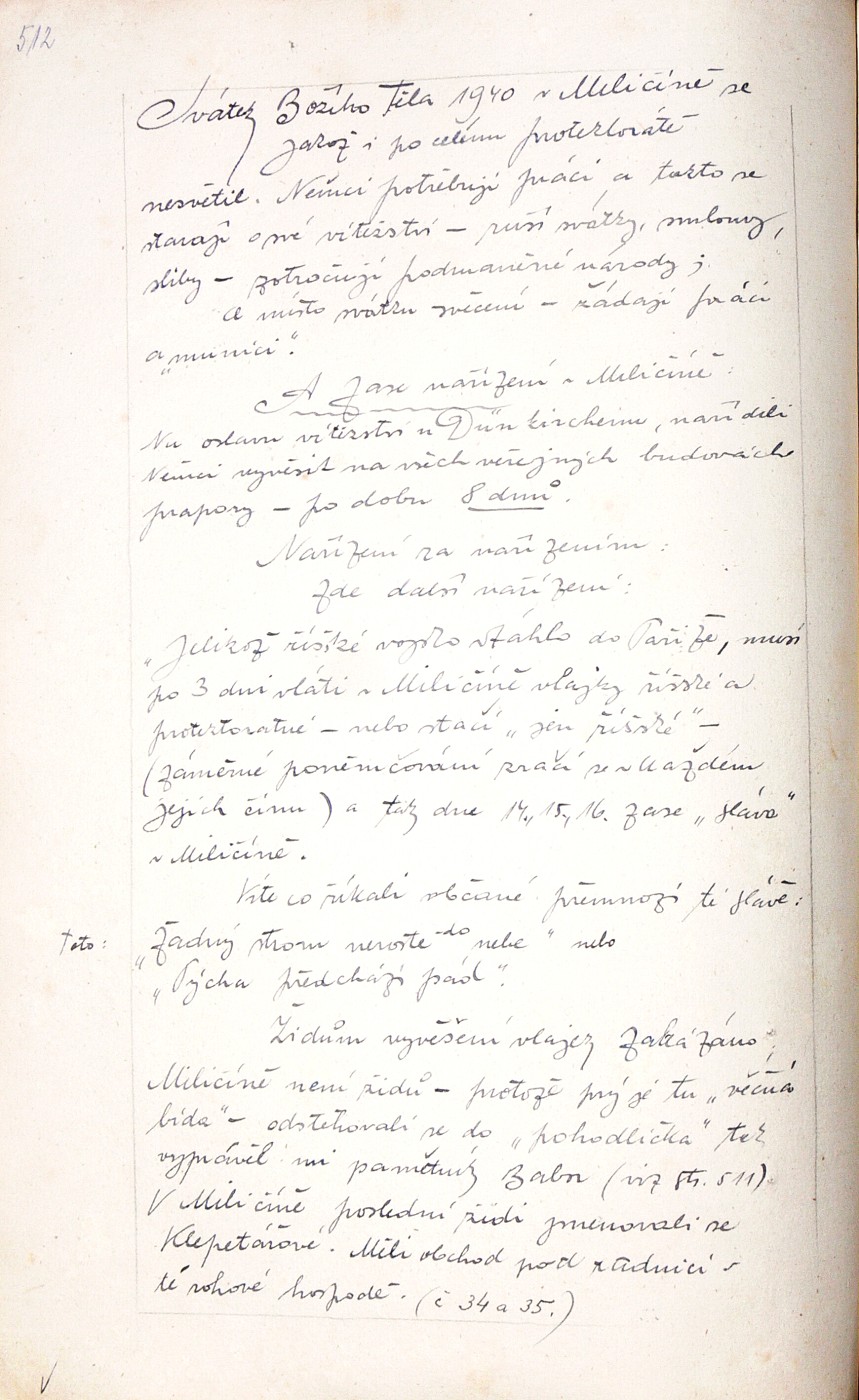 512
Svátek Božího Těla 1940 v Miličíně se
jakož i po celém protektorátě
nesvětil. Němci potřebují práci a takto se
starají o své vítězství – ruší svátky, smlouvy,
sliby – zotročují podmaněné národy j.
a místo svátku svěcení – žádají práci
a „munici“.
A zase nařízení v Miličíně:
Na oslavu vítězství u Dünkircheinu, nařídili
Němci vyvěsit na všech veřejných budovách
prapory – po dobu 8 dnů.
Nařízení za nařízením:
Zde další nařízení:
„Jelikož říšské vojsko vtáhlo do Paříže, musí
po 3 dni vláti v Miličíně vlajky říšské a
protektoratné – nebo stačí „jen říšské“ –
(záměrné poněmčování zračí se v každém
jejich činu) a tak dne 14., 15., 16. zase „sláva“
v Miličíně.
Víte co říkali občané přemnozí té slávě:
Toto: „Žádný strom neroste do nebe“ nebo
„Pýcha předchází pád“.
Židům vyvěšení vlajek zakázáno,
Miličíně není židů – protože prý je tu „věčná
bída“ – odstěhovali se do „pohodlíčka“ tak
vyprávěl mi pamětník Babor (viz str. 511)
V Miličíně poslední židi jmenovali se
Klepetářové. Měli obchod pod radnicí v
té rohové hospodě. (č 34 a 35.)